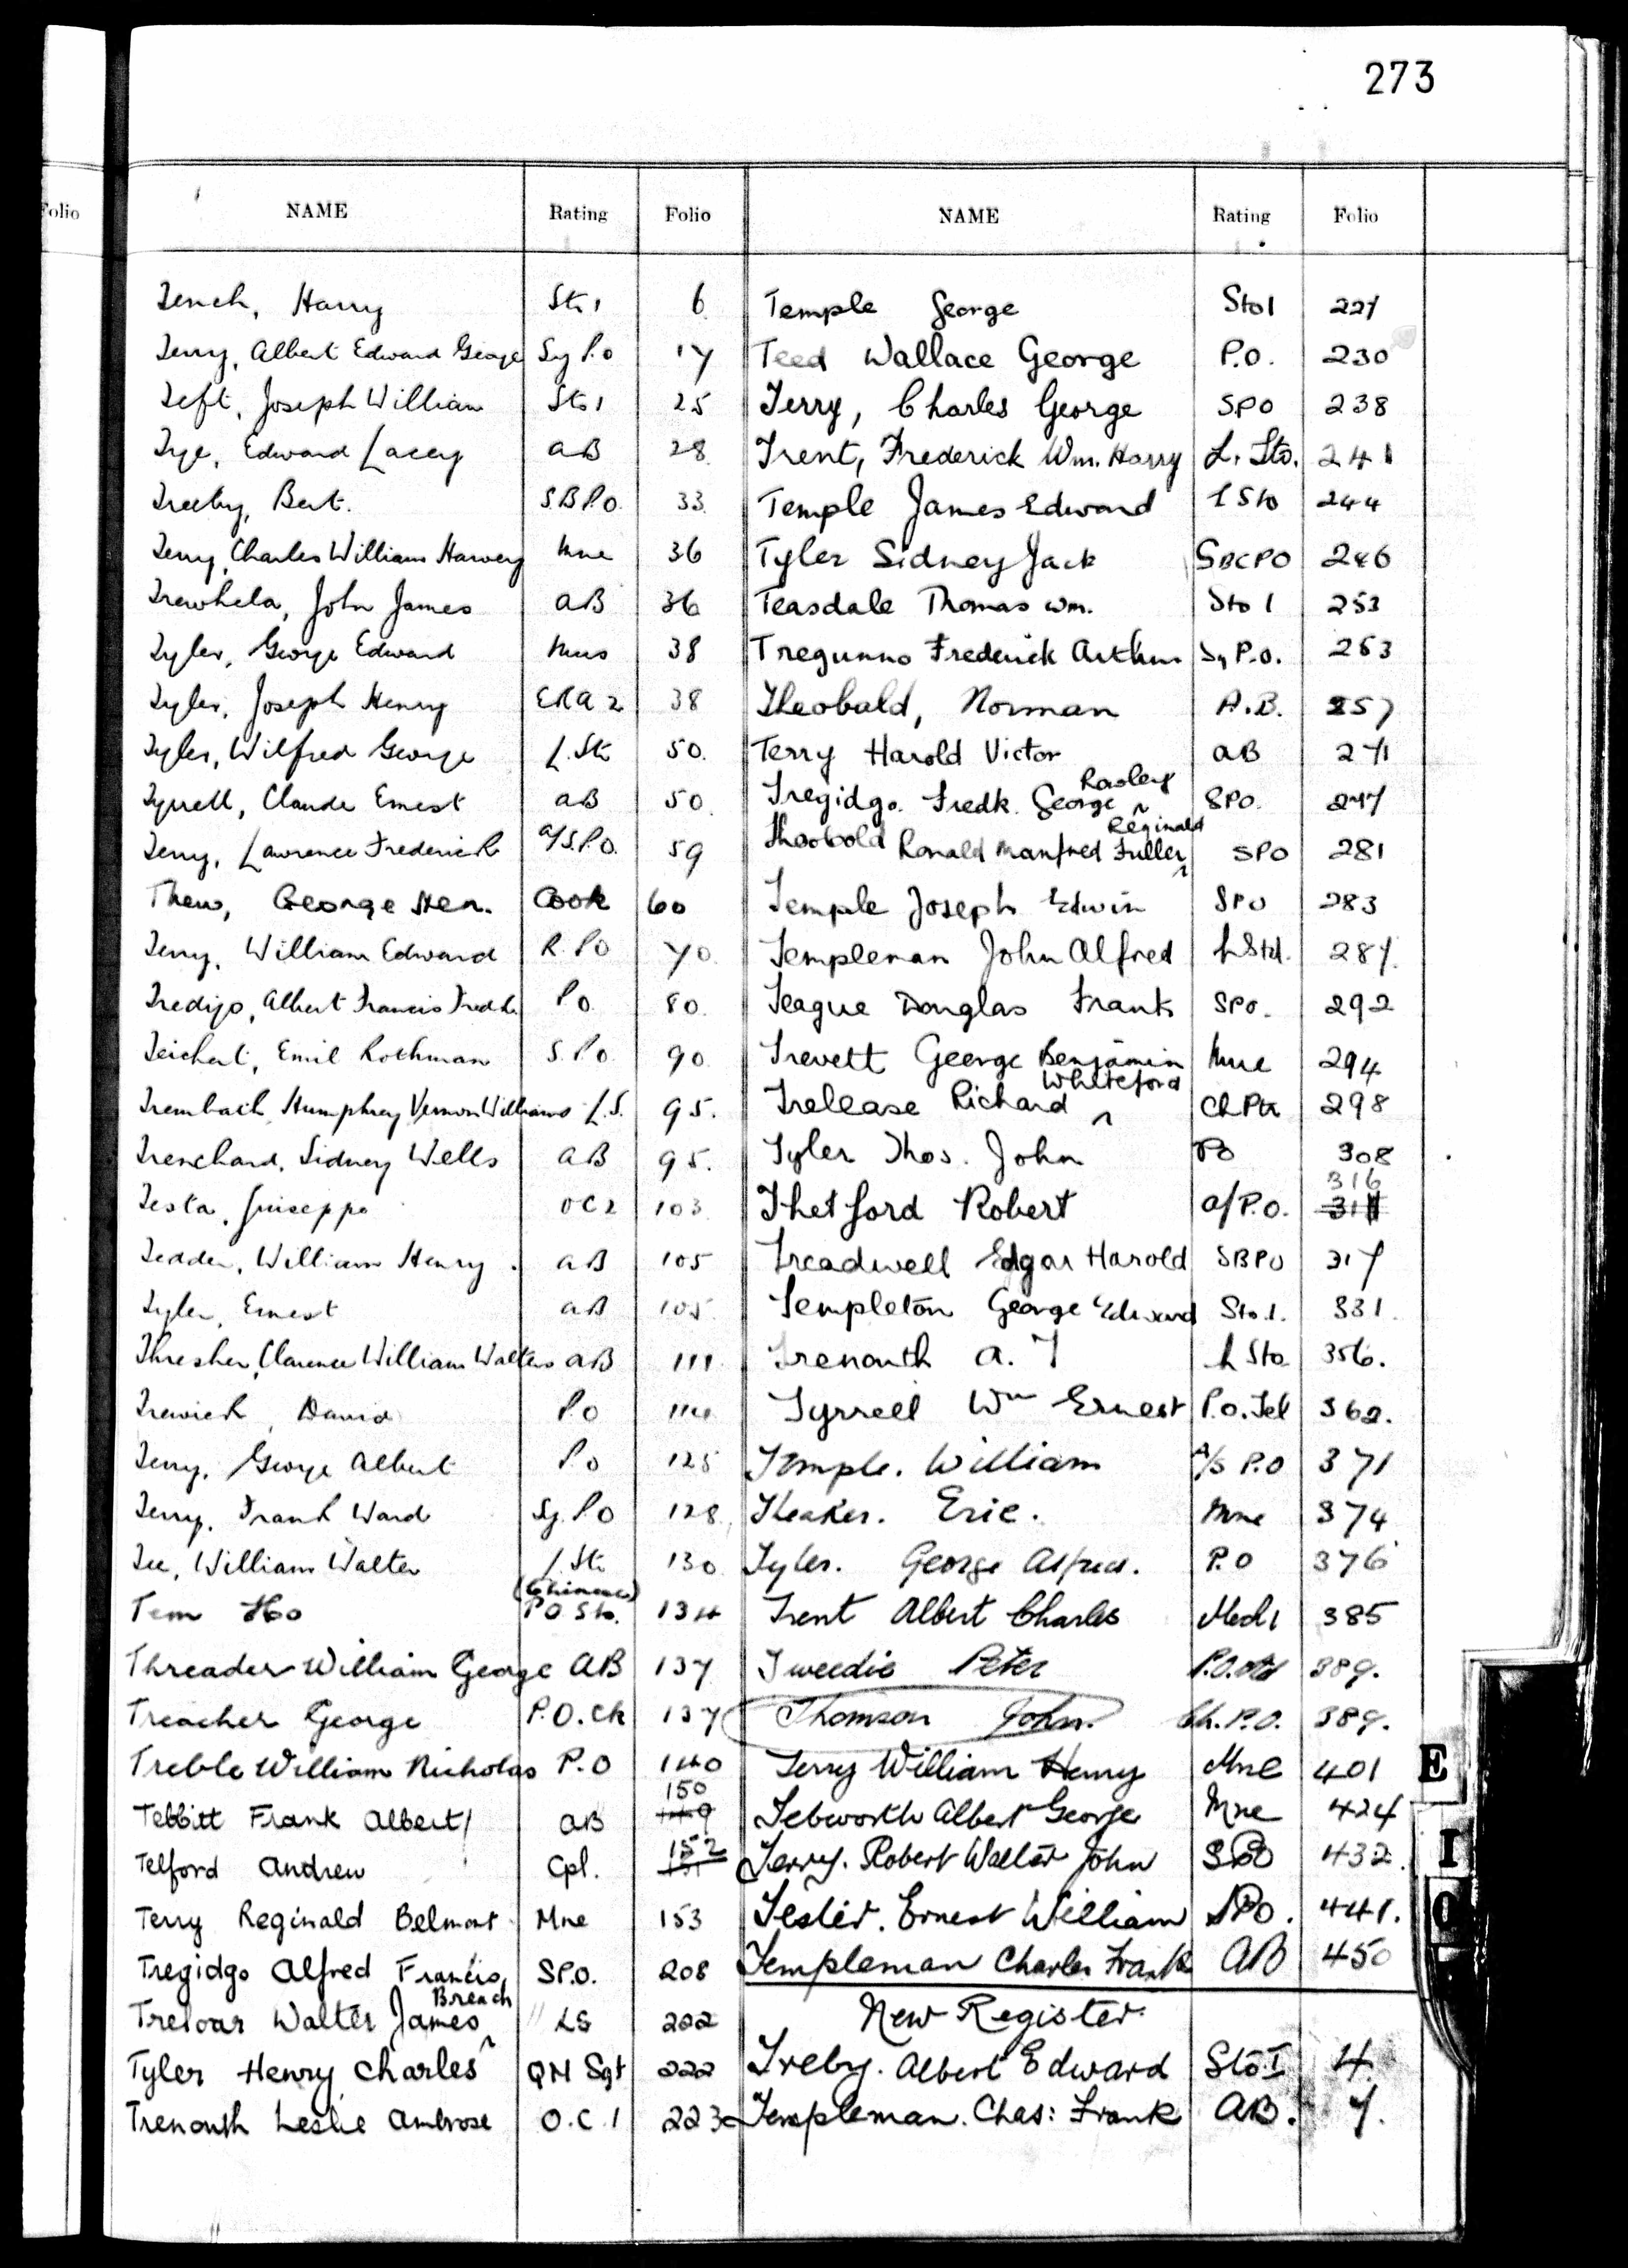 273
Folio
NAME Rating Folio NAME Rating Folio
Tench, Harry Sto 1 6
Terry, Albert Edward George Sy P.O 17
Teft, Joseph William Sto 1 25
Tye, Edward Lacey AB 28
Treeby, Bert. S.B.P.O. 33
Terry, Charles William Harvey Mne 36
Trewhela, John James AB 36
Tyler, George Edward Mus 38
Tyler, Joseph Henry ERA 2 38
Tyler, Wilfred George L.Sto 50.
Tyrrell, Claude Ernest AB 50
Terry, Lawrence Frederick A/S.P.O. 59
Thew, George Hen. Cook 60
Terry, William Edward R.PO 70.
Tredigo, Albert Francis Fredk. PO 80.
Teichert, Emil Rothman S.P.O. 90
Trembath, Humphrey Vernon Williams L.S. 95.
Trenchard, Sidney Wells AB 95.
Testa, Guiseppe OC2 103
Tedder, William Henry. AB 105
Tyler, Ernest AB 105
Thresher, Clarence William Walters AB 111
Trewick, David PO 114
Terry, George Albert PO 125
Terry, Frank Ward Sy. PO 128
Tee, William Walter L.Sto 130
(Chinese)
Tem Ho P.O Sto. 134
Threader William George AB 137
Treacher George P.O.Ck 137
Treble William Nicholas P.O 140
150
Tebbitt Frank Albert AB 149
152
Telford Andrew Cpl. 151
Terry Reginald Belmont Mne 153
Tregidgo Alfred Francis S.P.O. 208
Breach
Treloar Walter James LS 222
Tyler Henry Charles QM Sgt 222
Trenouth Leslie Ambrose O.C.1 223
Temple George Sto 1 227
Teed Wallace George P.O. 230
Terry, Charles George SPO 238
Trent, Frederick Wm. Harry L. Sto. 241
Temple James Edward L Sto 244
Tyler Sidney Jack SBCPO 246
Teasdale Thomas Wm. Sto 1 253
Tregunno Frederick Arthur Sy P.O. 253
Theobald, Norman A.B. 257
Terry Harold Victor AB 271
Rasley
Tregidgo. Fredk. George SPO. 277
Reginald
Theobold Ronald Manfred Fuller SPO 281
Temple Joseph Edwin SPO 283
Templeman John Alfred L Std. 287.
Teague Douglas Frank SPO. 292
Trevett George Benjamin Mne 294
Whiteford
Trelease Richard Ch Ptr 298
Tyler Thos. John PO 308
316
Thetford Robert A/P.O. 311
Treadwell Edgar Harold SBPO 317
Templeton George Edward Sto.1. 331.
Trenouth A. J L Sto 356.
Tyrrell Wm Ernest P.O. Tel 362.
Temple. William A/S P.O 371
Theaker. Eric. Mne 374
Tyler. George Alfred. P.O 376
Trent Albert Charles Mech 1 385
Tweedie Peter 389.
Thomson John. Ch.P.O. 389.
Terry William Henry Mne 401
Tebworth Albert George Mne 424
Terry. Robert Walter John SPO 432.
Tester. Ernest William SPO. 441.
Templeman Charles Frank AB 450
New Register.
Treby. Albert Edward Sto I 4.
Templeman. Chas: Frank AB. 7.
E
I
O